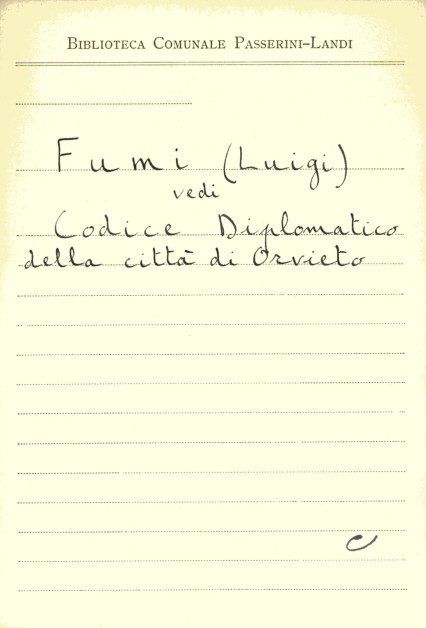 BIBLIOTECA COMUNALE PASSERINI–LANDI
Fumi (Luigi)
vedi
Codice Diplomatico
della città di Orvieto
C